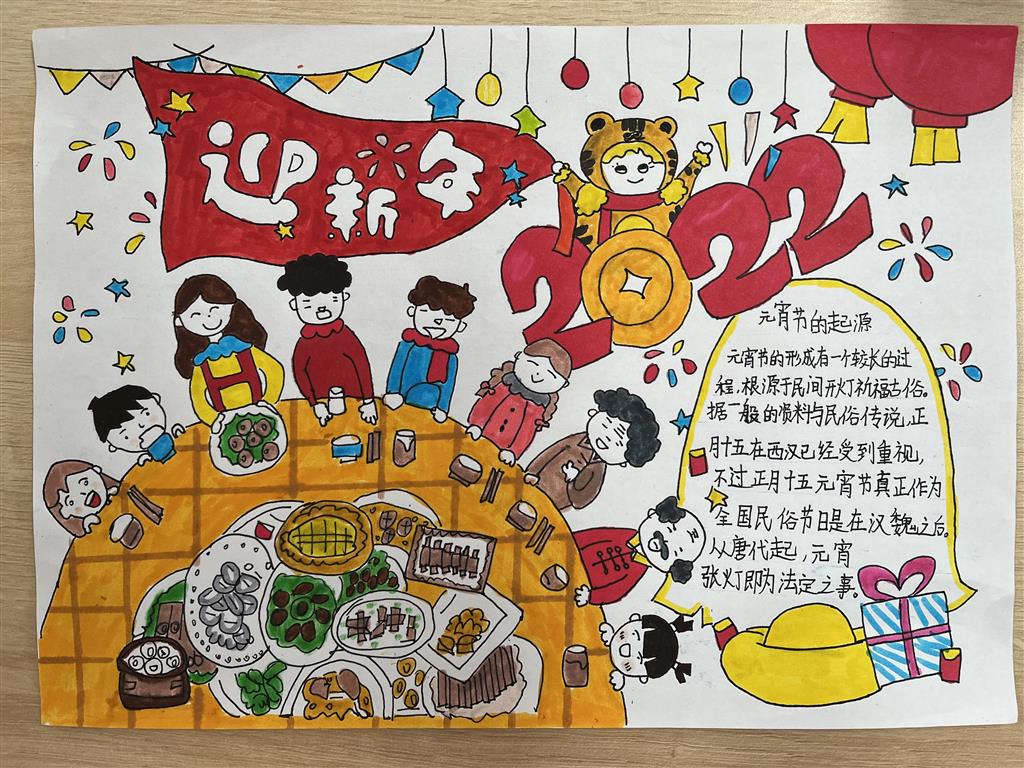 迎新年
2022
元宵节的起源
元宵节的形成有一个较长的过
程,根源于民间开灯祈福古俗。
据一般的资料与民俗传说,正
月十五在西汉已经受到重视,
不过正月十五元宵节真正作为
全国民俗节日是在汉魏之后。
从唐代起,元宵
张灯即为法定之事。